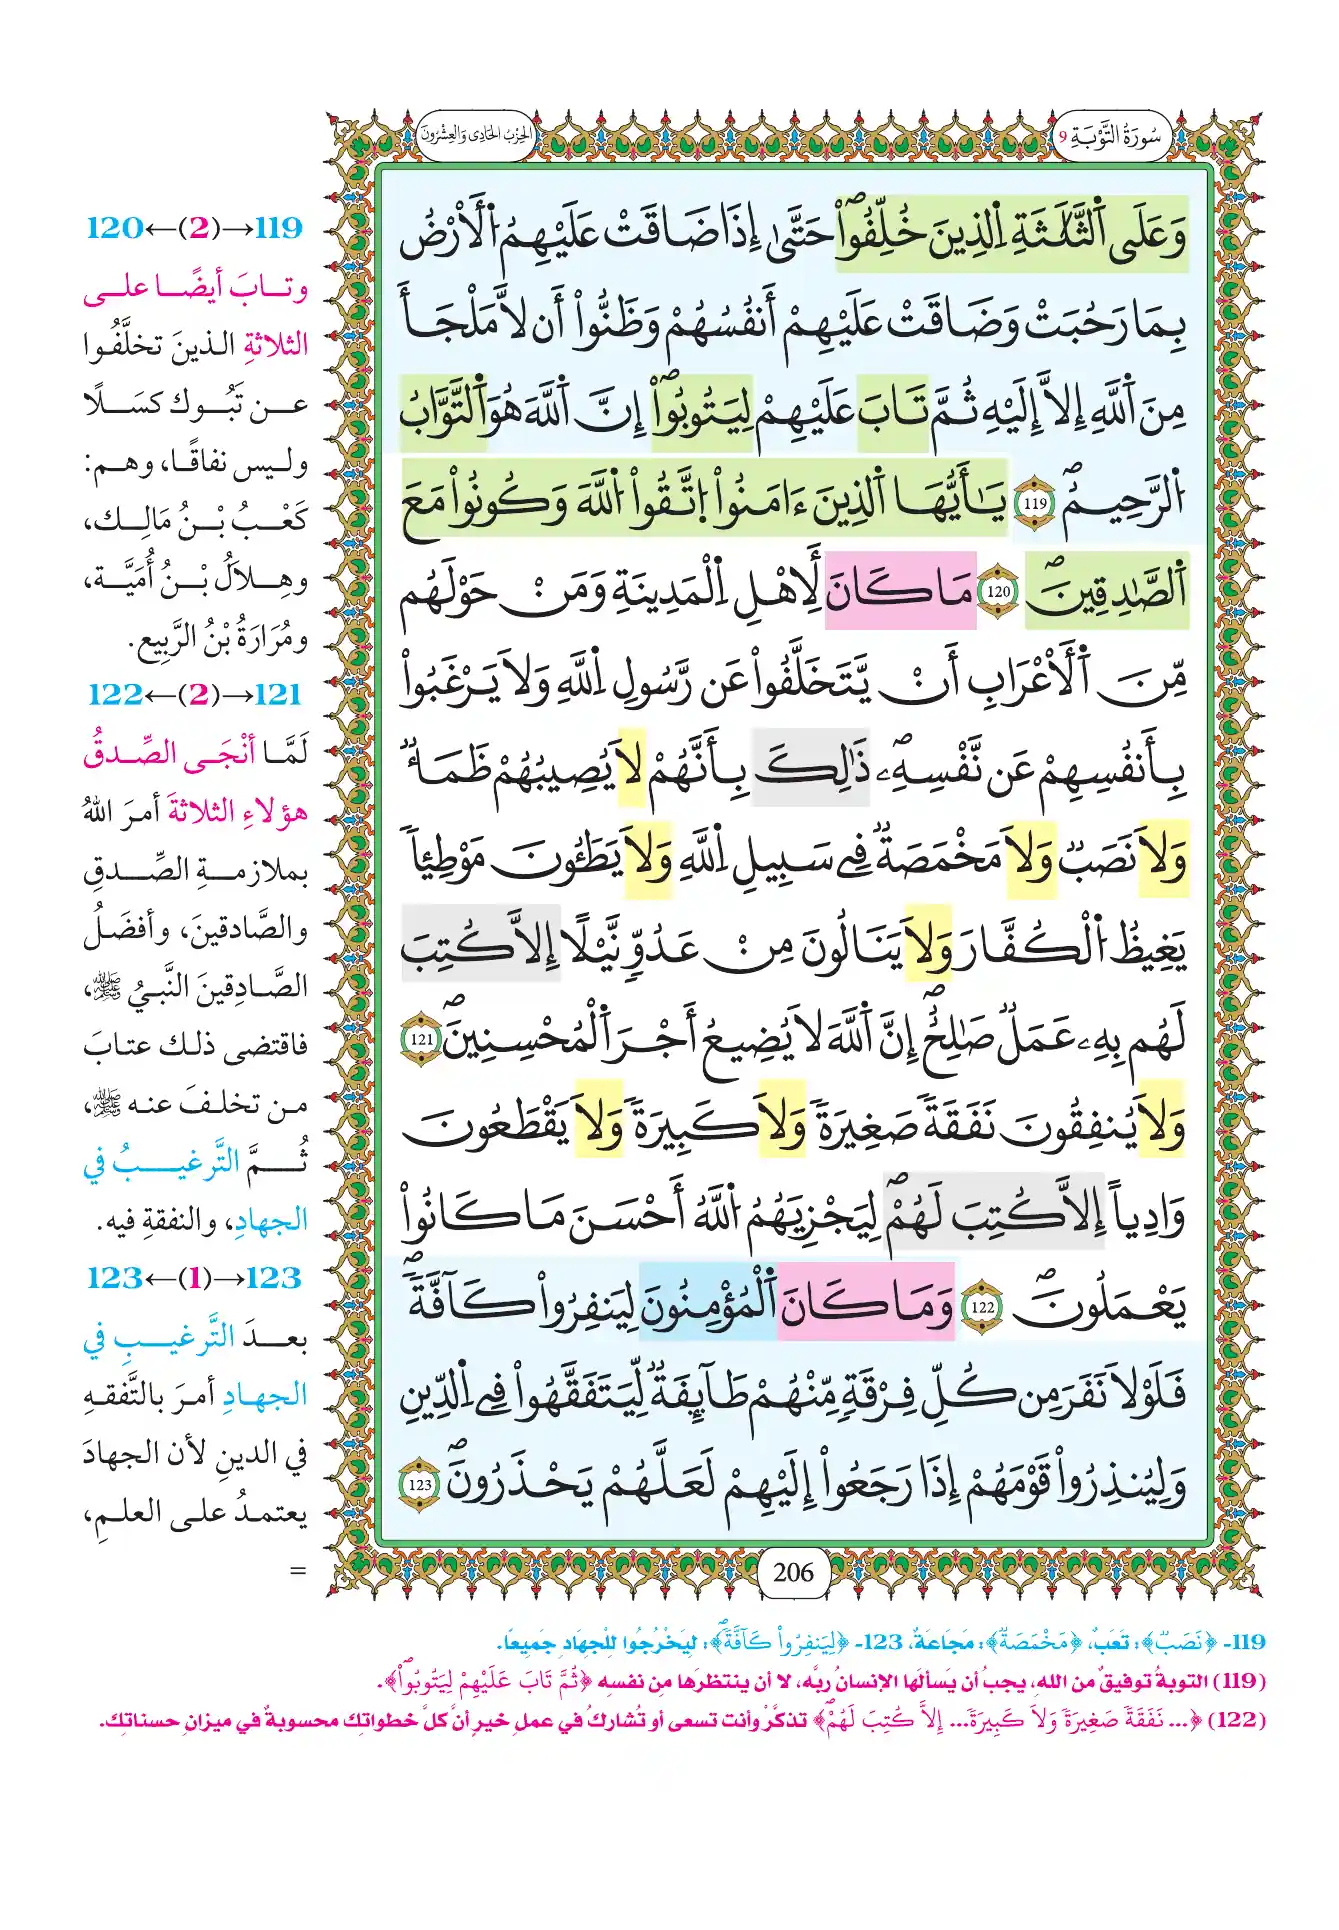 سُورَةُ التَّوْبَةِ 9
الحِزْبُ الحَادِي وَالعِشْرُونَ
وَعَلَى اَ۬لثَّلَٰثَةِ اِ۬لذِينَ خُلِّفُواْۖ حَتَّىٰ إِذَا ضَاقَتْ عَلَيْهِمُ اُ۬لَارْضُ
بِمَا رَحُبَتْ وَضَاقَتْ عَلَيْهِمْ أَنفُسُهُمْ وَظَنُّواْ أَن لَّا مَلْجَأَ
مِنَ اَ۬للَّهِ إِلَّا إِلَيْهِ ثُمَّ تَابَ عَلَيْهِمْ لِيَتُوبُواْۖ إِنَّ اَ۬للَّهَ هُوَ اَ۬لتَّوَّابُ
اُ۬لرَّحِيمُۖ 119 يَٰأَيُّهَا اَ۬لذِينَ ءَامَنُواْ اُ۪تَّقُواْ اُ۬للَّهَ وَكُونُواْ مَعَ
اَ۬لصَّٰدِقِينَۖ 120 مَا كَانَ لِأَهْلِ اِ۬لْمَدِينَةِ وَمَنْ حَوْلَهُم
مِّنَ اَ۬لَاعْرَابِ أَنْ يَّتَخَلَّفُواْ عَن رَّسُولِ اِ۬للَّهِ وَلَا يَرْغَبُواْ
بِأَنفُسِهِمْ عَن نَّفْسِهِۦۖ ذَٰلِكَ بِأَنَّهُمْ لَا يُصِيبُهُمْ ظَمَأٞ
وَلَا نَصَبٞ وَلَا مَخْمَصَةٞ فِے سَبِيلِ اِ۬للَّهِ وَلَا يَطَـُٔونَ مَوْطِئاٗ
يَغِيظُ اُ۬لْكُفَّارَ وَلَا يَنَالُونَ مِنْ عَدُوّٖ نَّيْلًا إِلَّا كُتِبَ
لَهُم بِهِۦ عَمَلٞ صَٰلِحٌۖ إِنَّ اَ۬للَّهَ لَا يُضِيعُ أَجْرَ اَ۬لْمُحْسِنِينَۖ 121
وَلَا يُنفِقُونَ نَفَقَةٗ صَغِيرَةٗ وَلَا كَبِيرَةٗ وَلَا يَقْطَعُونَ
وَادِياً إِلَّا كُتِبَ لَهُمْۖ لِيَجْزِيَهُمُ اُ۬للَّهُ أَحْسَنَ مَا كَانُواْ
يَعْمَلُونَۖ 122 وَمَا كَانَ اَ۬لْمُؤْمِنُونَ لِيَنفِرُواْ كَآفَّةٗۖ
فَلَوْلَا نَفَرَ مِن كُلِّ فِرْقَةٖ مِّنْهُمْ طَآئِفَةٞ لِّيَتَفَقَّهُواْ فِے اِ۬لدِّينِ
وَلِيُنذِرُواْ قَوْمَهُمْ إِذَا رَجَعُواْ إِلَيْهِمْ لَعَلَّهُمْ يَحْذَرُونَۖ 123
206
119→(2)←120
وتابَ أيضًا على
الثلاثةِ الذينَ تخلَّفُوا
عن تَبُوك كسَلًا
وليس نفاقًا، وهم:
كَعْبُ بْنُ مَالِك،
وهِلَالُ بْنُ أُمَيَّة،
ومُرَارَةُ بْنُ الرَّبِيع.
121→(2)←122
لَمَّا أنْجَى الصِّدقُ
هؤلاءِ الثلاثةَ أمرَ اللهُ
بملازمةِ الصِّدقِ
والصَّادقينَ، وأفضَلُ
الصَّادِقينَ النَّبيُ ﷺ،
فاقتضى ذلك عتابَ
من تخلفَ عنه ﷺ،
ثُمَّ التَّرغيبُ في
الجهادِ، والنفقةِ فيه.
123→(1)←123
بعدَ التَّرغيبِ في
الجهادِ أمرَ بالتَّفقهِ
في الدينِ لأن الجهادَ
يعتمدُ على العلمِ،
=
119- ﴿نَصَبٞ﴾: تَعَبٌ، ﴿مَخْمَصَةٞ﴾: مَجَاعَةٌ، 123- ﴿لِيَنفِرُواْ كَآفَّةٗۖ﴾: لِيَخْرُجُوا لِلْجِهَادِ جَمِيعًا.
(119) التوبةُ توفيقٌ من اللهِ، يجبُ أن يَسألَها الإنسانُ ربَّه، لا أن ينتظرَها مِن نفسِه ﴿ثُمَّ تَابَ عَلَيْهِمْ لِيَتُوبُواْۖ﴾.
(122) ﴿... نَفَقَةٗ صَغِيرَةٗ وَلَا كَبِيرَةٗ... إِلَّا كُتِبَ لَهُمْۖ﴾ تذكَّرْ وأنت تسعى أو تُشاركُ في عملِ خيرٍ أنَّ كلَّ خطواتِك محسوبةٌ في ميزانِ حسناتِك.